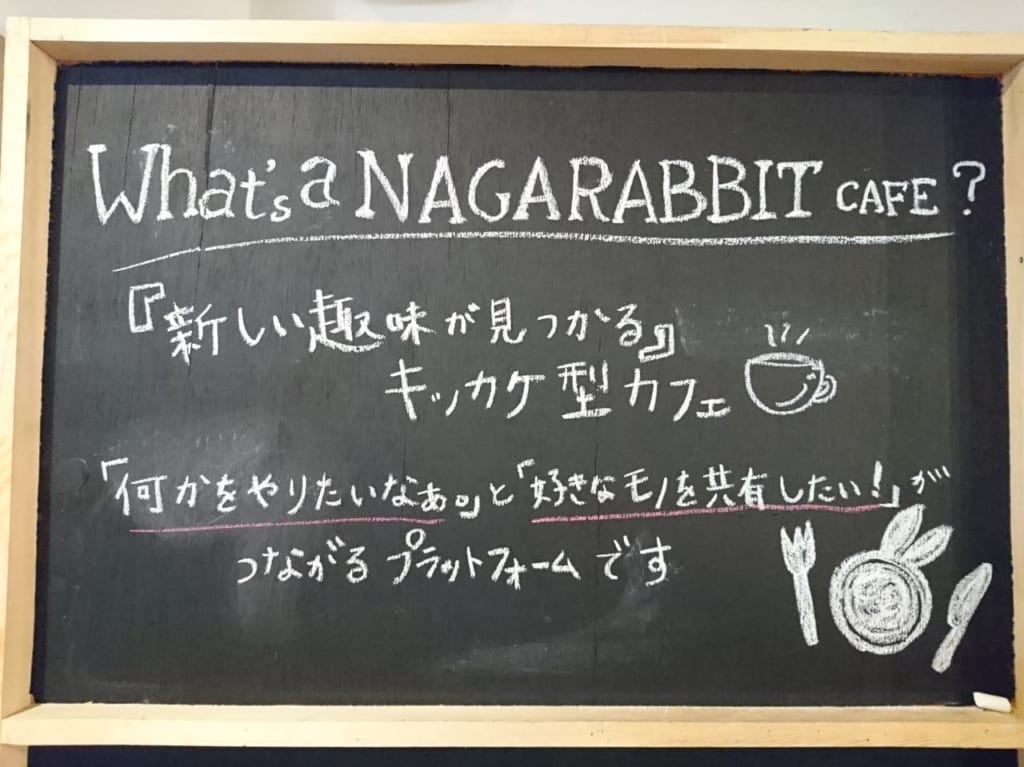 What's a NAGARABBIT CAFE?
『新しい趣味が見つかる』
キッカケ型カフェ
「何かをやりたいなぁ。」と「好きなモノを共有したい!」が
つながるプラットフォームです